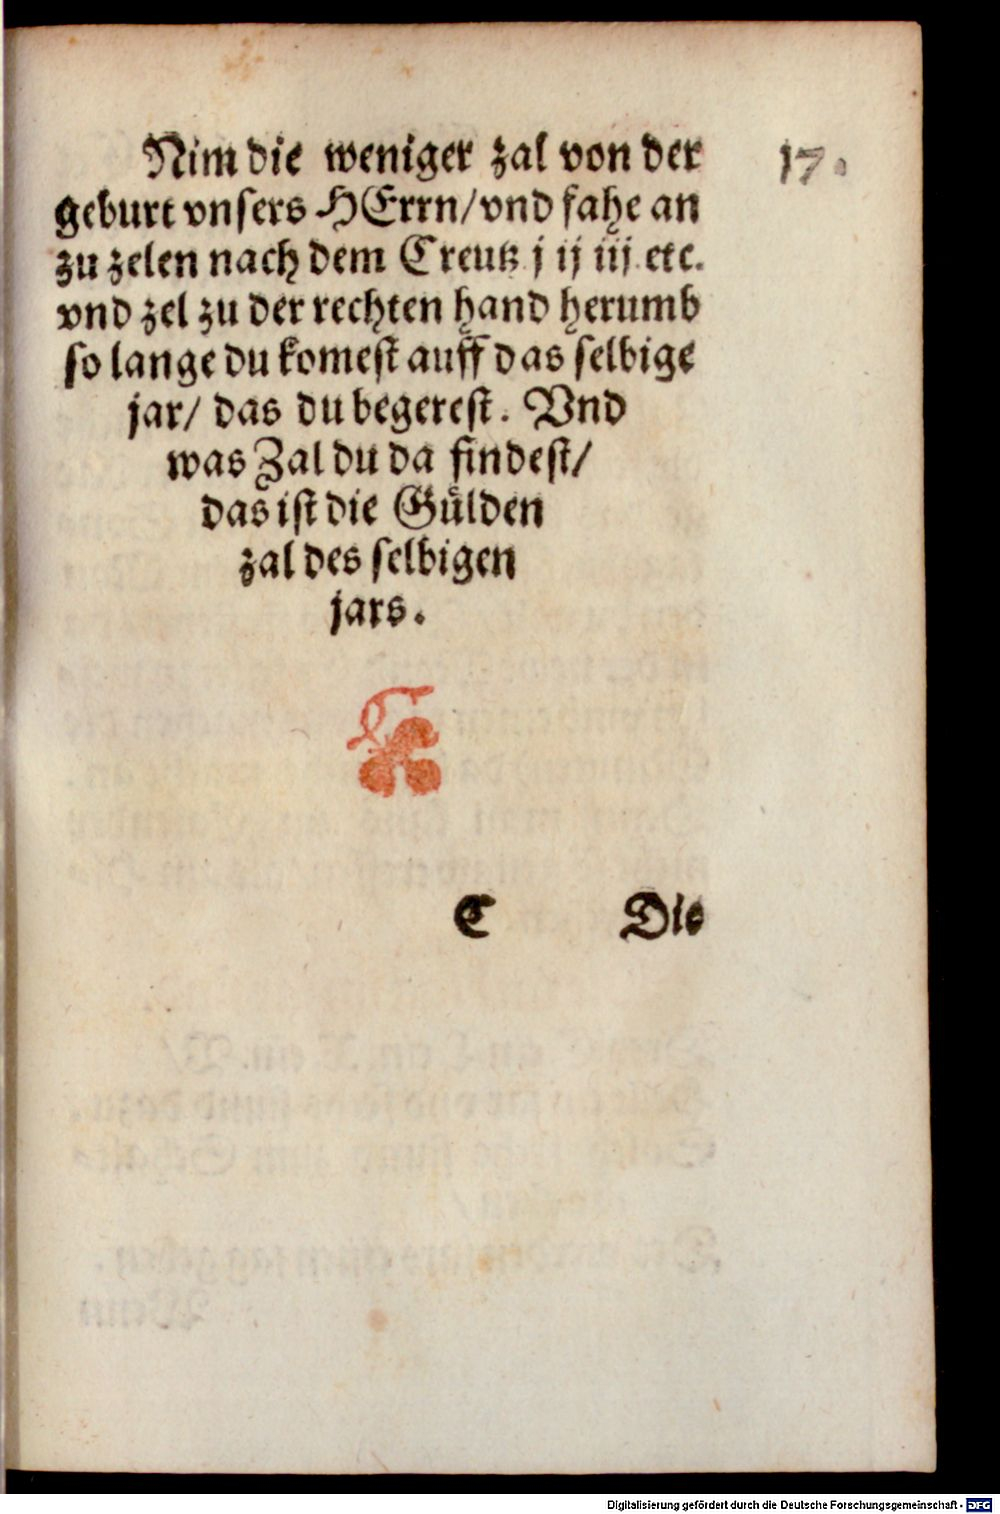 Nim die weniger zal von der
geburt vnsers HErrn/vnd fahe an
zu zelen nach dem Creutz j ij iij etc.
vnd zel zu der rechten hand herumb
so lange du komest auff das selbige
jar/ das du begerest. Vnd
was Zal du da findest/
das ist die Gülden
zal des selbigen
jars.
17.
C Die
Digitalisierung gefördert durch die Deutsche Forschungsgemeinschaft - DFG